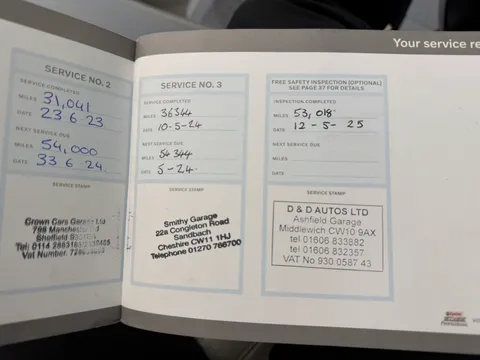 Your service re
SERVICE NO. 2
SERVICE COMPLETED
MILES 31,041
DATE 23 6 23
NEXT SERVICE DUE
MILES 54,000
DATE 33 6 24
SERVICE STAMP
Crown Cars Ltd
Sheffield
SERVICE NO. 3
SERVICE COMPLETED
MILES 36344
DATE 10-5-24
NEXT SERVICE DUE
MILES 54344
DATE 5-24
SERVICE STAMP
Smithy Garage
22a Congleton Road
Sandbach
Cheshire CW11 1HJ
Telephone 01270 766700
FREE SAFETY INSPECTION (OPTIONAL)
SEE PAGE 37 FOR DETAILS
INSPECTION COMPLETED
MILES 53,018
DATE 12-5-25
NEXT SERVICE DUE
MILES
DATE
SERVICE STAMP
D & D AUTOS LTD
Ashfield Garage
Middlewich CW10 9AX
tel 01606 833882
tel 01606 832357
VAT No 930 0587 43